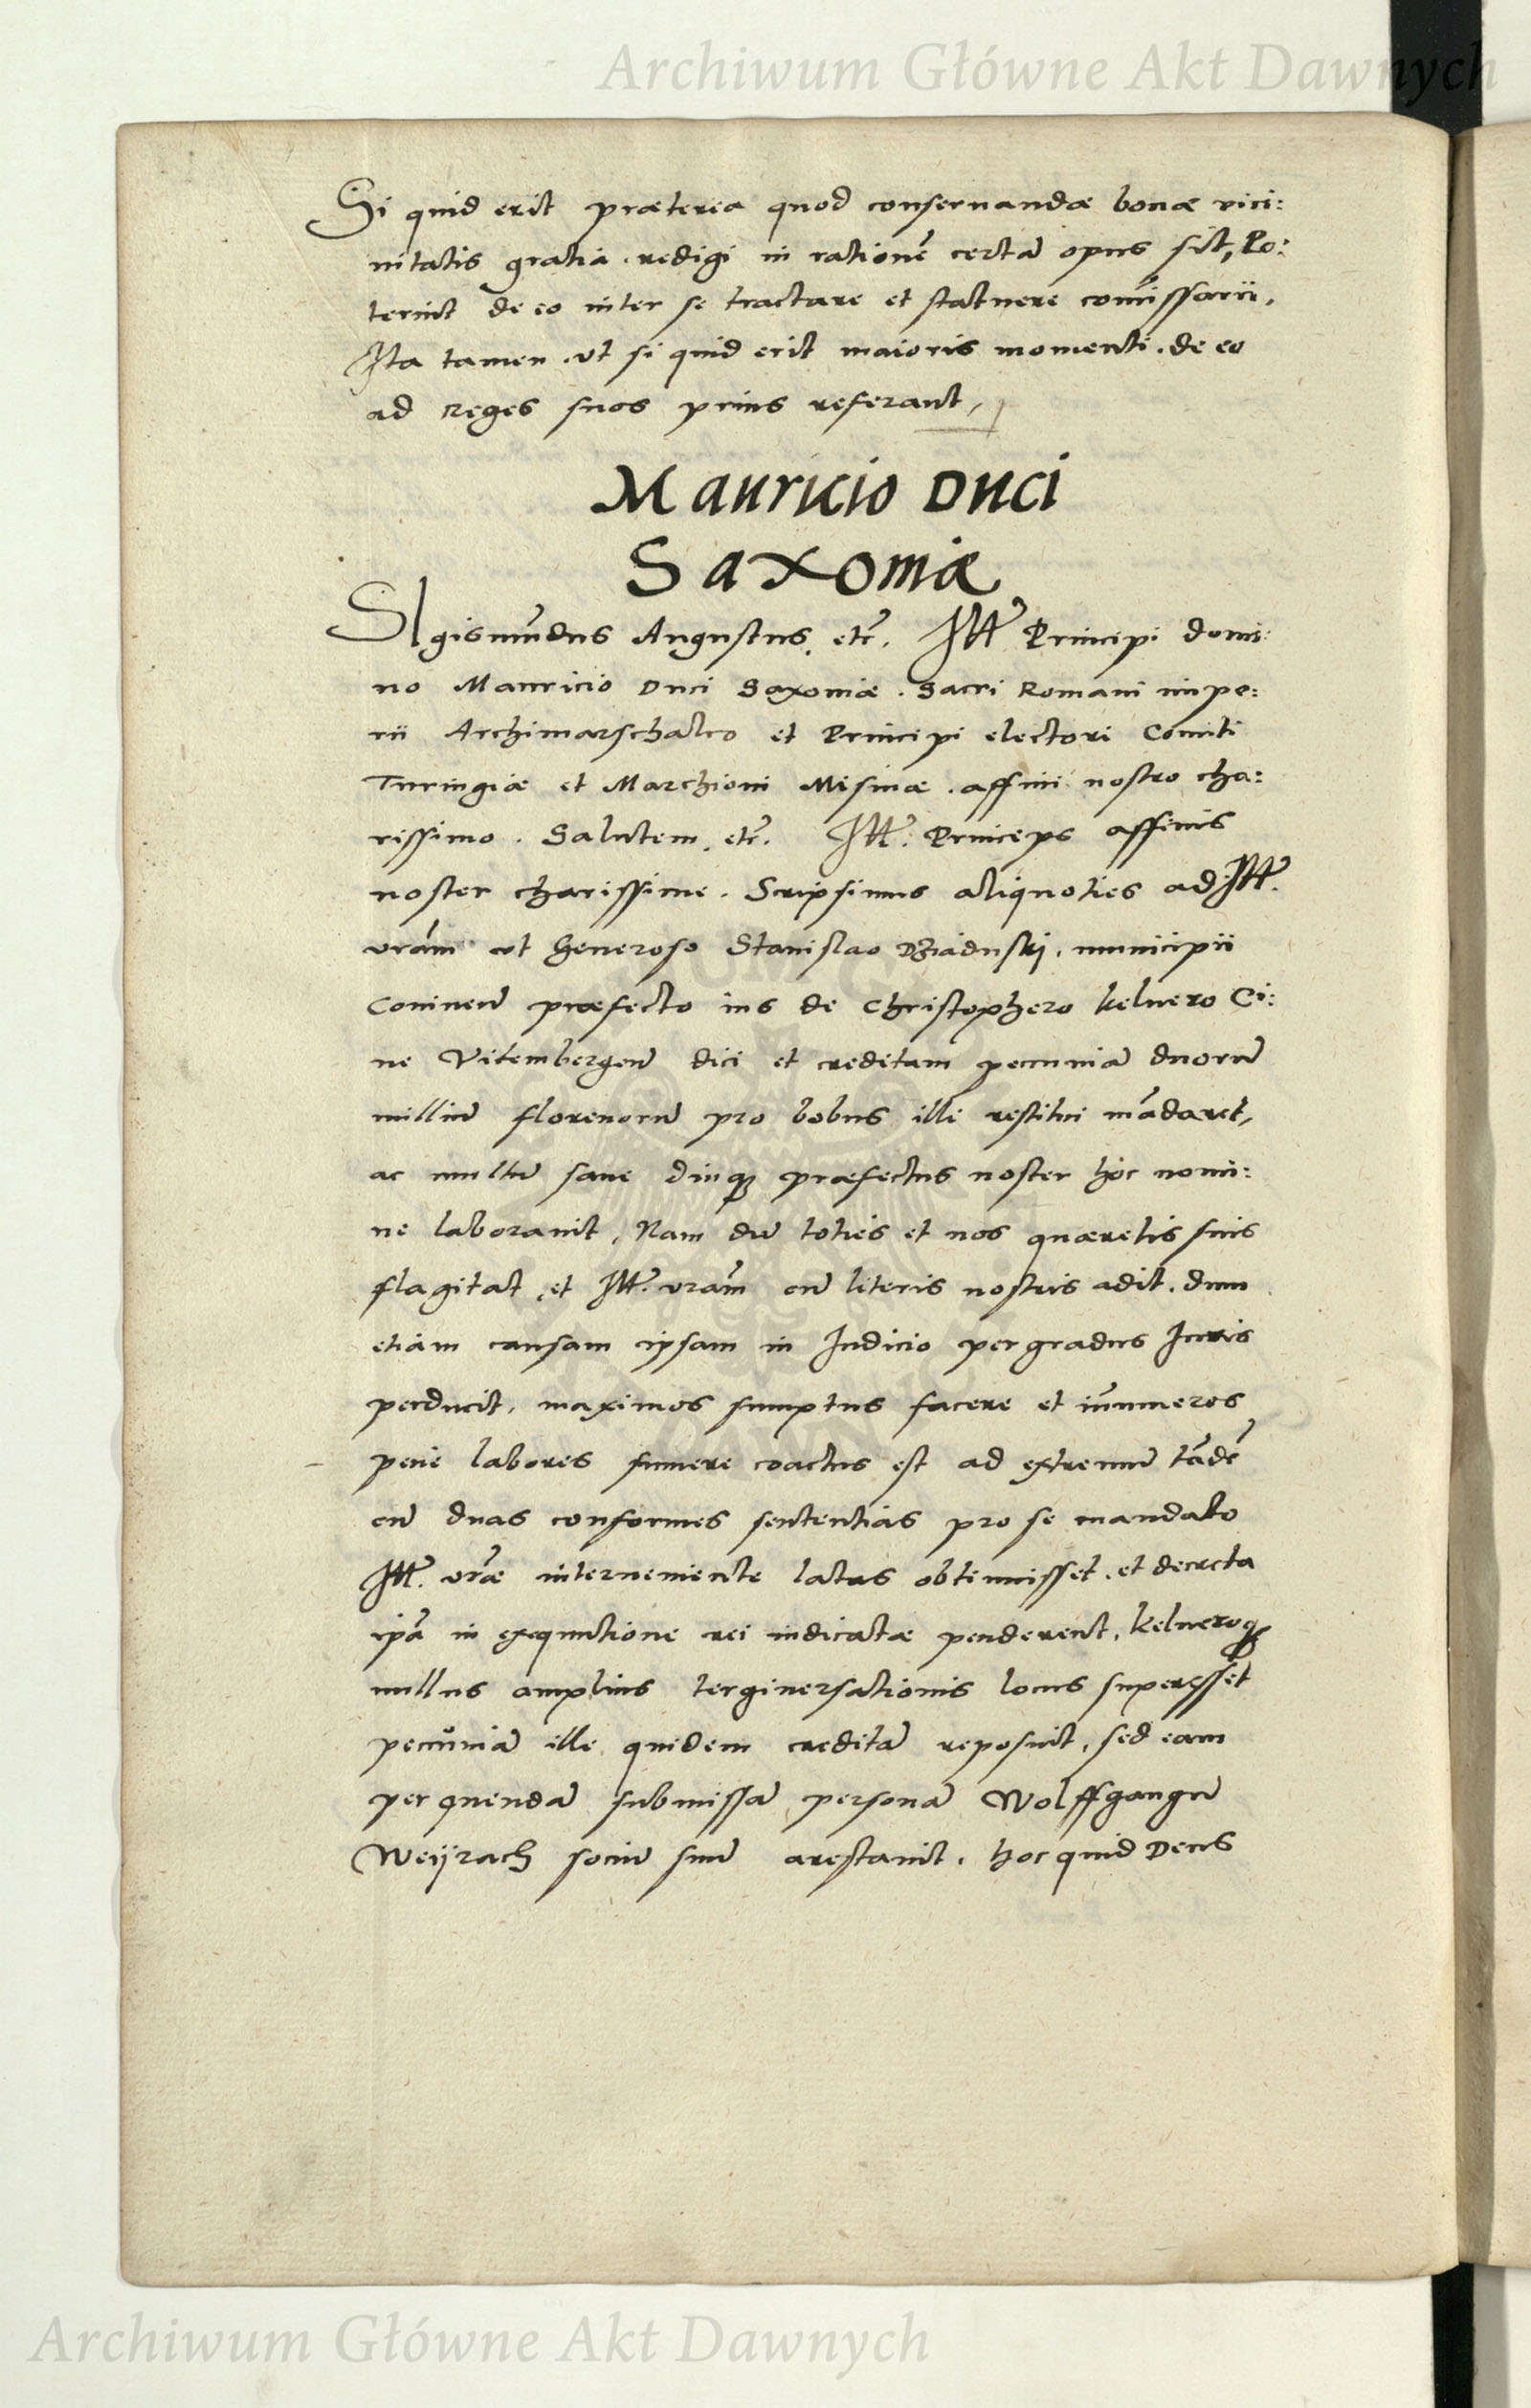 Archiwum Główne Akt Dawnych
Si quid erit præterea quod conseruandæ bonæ vici:
nitatis gratia. redigi in rationē certā opus sit, Po:
terint de eo inter se tractare et statuere com̄issarii.
Ita tamen. vt si quid erit maioris momenti. de eo
ad Reges suos prius referant,
Mauricio Duci
Saxoniæ
SIgismūdus Augustus. etc̄. Ill. Principi domi:
no Mauricio Duci Saxoniæ. Sacri Romani impe:
rii Archimarschalco et Principi electori Comiti
Turingiæ et Marchioni Misinæ. affini nostro cha:
rissimo. Salutem. etc̄. Ill. Princeps affinis
noster charissime. Scripsimus aliquoties ad Ill.
vrām vt Generoso Stanislao Dziaduskj. municipii
Coninen̄ præfecto ius de Christophero kelnero Ci:
ne Vitembergen̄ dici et creditam pecuniā duorū
milliū florenorū pro bobus illi restitui mādaret,
ac multū sane diuq3 præfectus noster hoc nomi:
ne laborauit, Nam dū toties et nos quærelis suis
flagitat, et Ill. vrām cū literis nostris adit. dum
etiam causam ipsam in Iudicio per gradus Iuris
perducit, maximos sumptus facere et iñumeros
pene labores sumere coactus est ad extremū tādē
cū duas conformes sententias pro se mandato
Ill. vrǣ interueniente latas obtinuisset. et decreta
ip̄a in exequutione rei iudicatæ penderent, kelneroq3
nullus amplius terginersationis locus superesset
pecūniā ille quidem creditā reposuit, sed eam
per quendā submissā personā Wolffgangū
Weÿrach sociū suū arestauit. hoc quid Deus
Archiwum Główne Akt Dawnych